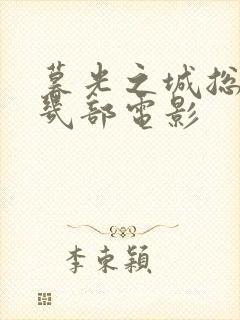 暮光之城总
几部電影
李東穎